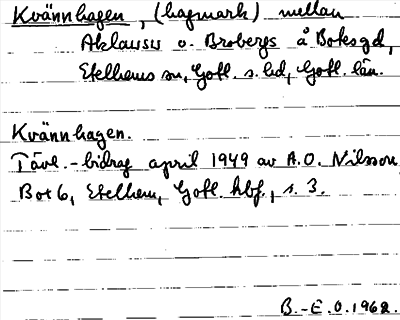 Kvännhagen, (hagmark) mellan
Aklausu o. Brobergs å Botesgd,
Etelhems sn, Gotl. s. hd, Gotl. län.
Kvännhagen.
Tävl.-bidrag april 1949 av A.O. Nilsson
Box 6, Etelhem, Gotl. hbf., s. 3.
B.-E.O. 1962.